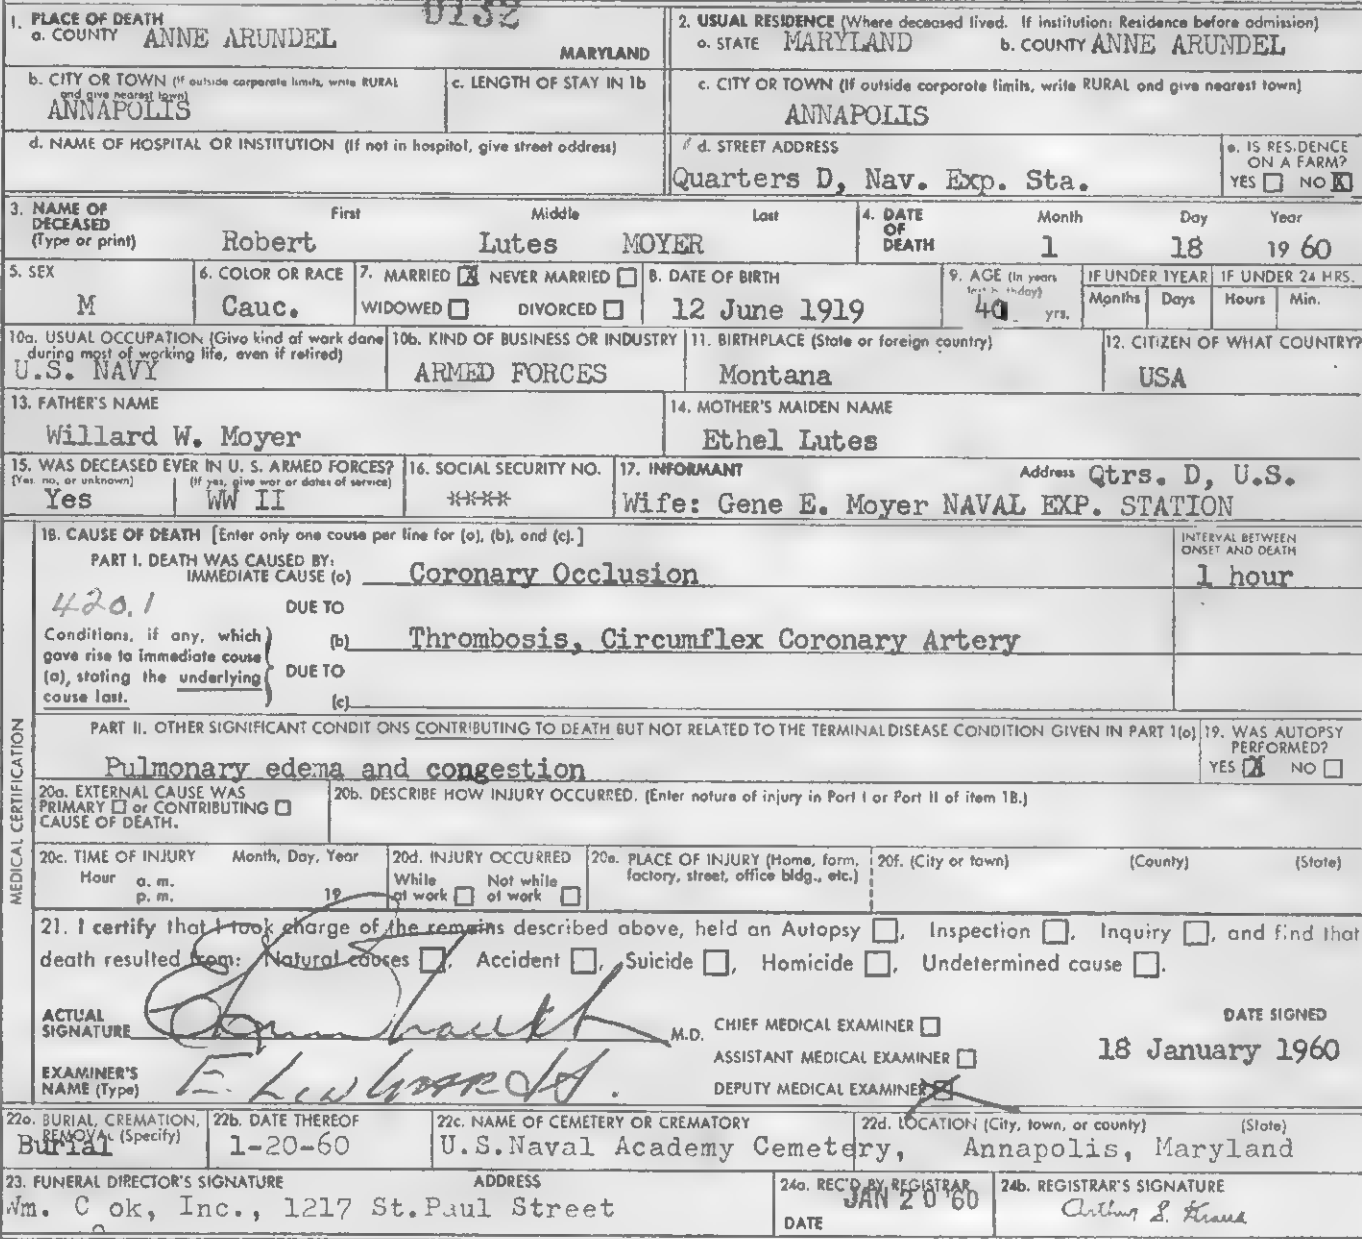 0132
1. PLACE OF DEATH
a. COUNTY ANNE ARUNDEL
MARYLAND
2. USUAL RESIDENCE (Where deceased lived. If institution: Residence before admission)
a. STATE MARYLAND b. COUNTY ANNE ARUNDEL
b. CITY OR TOWN (If outside corporate limits, write RURAL and give nearest town)
ANNAPOLIS
c. LENGTH OF STAY IN 1b
c. CITY OR TOWN (If outside corporate limits, write RURAL and give nearest town)
ANNAPOLIS
d. NAME OF HOSPITAL OR INSTITUTION (If not in hospital, give street address)
d. STREET ADDRESS
Quarters D, Nav. Exp. Sta.
e. IS RESIDENCE ON A FARM?
YES NO X
3. NAME OF DECEASED (Type or print)
First Middle Last
Robert Lutes MOYER
4. DATE OF DEATH
Month Day Year
1 18 1960
5. SEX
M
6. COLOR OR RACE
Cauc.
7. MARRIED X NEVER MARRIED
WIDOWED DIVORCED
8. DATE OF BIRTH
12 June 1919
9. AGE (In years last birthday)
40 yrs.
IF UNDER 1 YEAR
Months Days
IF UNDER 24 HRS.
Hours Min.
10a. USUAL OCCUPATION (Give kind of work done during most of working life, even if retired)
U.S. NAVY
10b. KIND OF BUSINESS OR INDUSTRY
ARMED FORCES
11. BIRTHPLACE (State or foreign country)
Montana
12. CITIZEN OF WHAT COUNTRY?
USA
13. FATHER'S NAME
Willard W. Moyer
14. MOTHER'S MAIDEN NAME
Ethel Lutes
15. WAS DECEASED EVER IN U. S. ARMED FORCES?
(Yes, no, or unknown) (If yes, give war or dates of service)
Yes WW II
16. SOCIAL SECURITY NO.
****
17. INFORMANT Address Qtrs. D, U.S.
Wife: Gene E. Moyer NAVAL EXP. STATION
MEDICAL CERTIFICATION
18. CAUSE OF DEATH [Enter only one cause per line for (a), (b), and (c).]
INTERVAL BETWEEN ONSET AND DEATH
PART I. DEATH WAS CAUSED BY:
IMMEDIATE CAUSE (a) Coronary Occlusion 1 hour
420.1
DUE TO
Conditions, if any, which gave rise to immediate cause (a), stating the underlying cause last.
(b) Thrombosis, Circumflex Coronary Artery
DUE TO
(c)
PART II. OTHER SIGNIFICANT CONDITIONS CONTRIBUTING TO DEATH BUT NOT RELATED TO THE TERMINAL DISEASE CONDITION GIVEN IN PART 1(a)
Pulmonary edema and congestion
19. WAS AUTOPSY PERFORMED?
YES X NO
20a. EXTERNAL CAUSE WAS PRIMARY or CONTRIBUTING CAUSE OF DEATH.
20b. DESCRIBE HOW INJURY OCCURRED. (Enter nature of injury in Part I or Part II of item 18.)
20c. TIME OF INJURY Month, Day, Year
Hour a. m.
p. m. 19
20d. INJURY OCCURRED
While at work Not while at work
20e. PLACE OF INJURY (Home, farm, factory, street, office bldg., etc.)
20f. (City or town) (County) (State)
21. I certify that I took charge of the remains described above, held an Autopsy , Inspection , Inquiry , and find that
death resulted from: Natural causes , Accident , Suicide , Homicide , Undetermined cause .
ACTUAL SIGNATURE M.D.
CHIEF MEDICAL EXAMINER
DATE SIGNED
ASSISTANT MEDICAL EXAMINER
18 January 1960
EXAMINER'S NAME (Type)
DEPUTY MEDICAL EXAMINER X
22a. BURIAL, CREMATION, REMOVAL (Specify)
Burial
22b. DATE THEREOF
1-20-60
22c. NAME OF CEMETERY OR CREMATORY
U.S.Naval Academy Cemetery,
22d. LOCATION (City, town, or county) (State)
Annapolis, Maryland
23. FUNERAL DIRECTOR'S SIGNATURE ADDRESS
Wm. C ok, Inc., 1217 St.Paul Street
24a. REC'D BY REGISTRAR
DATE JAN 20 '60
24b. REGISTRAR'S SIGNATURE
Arthur S. Kraus